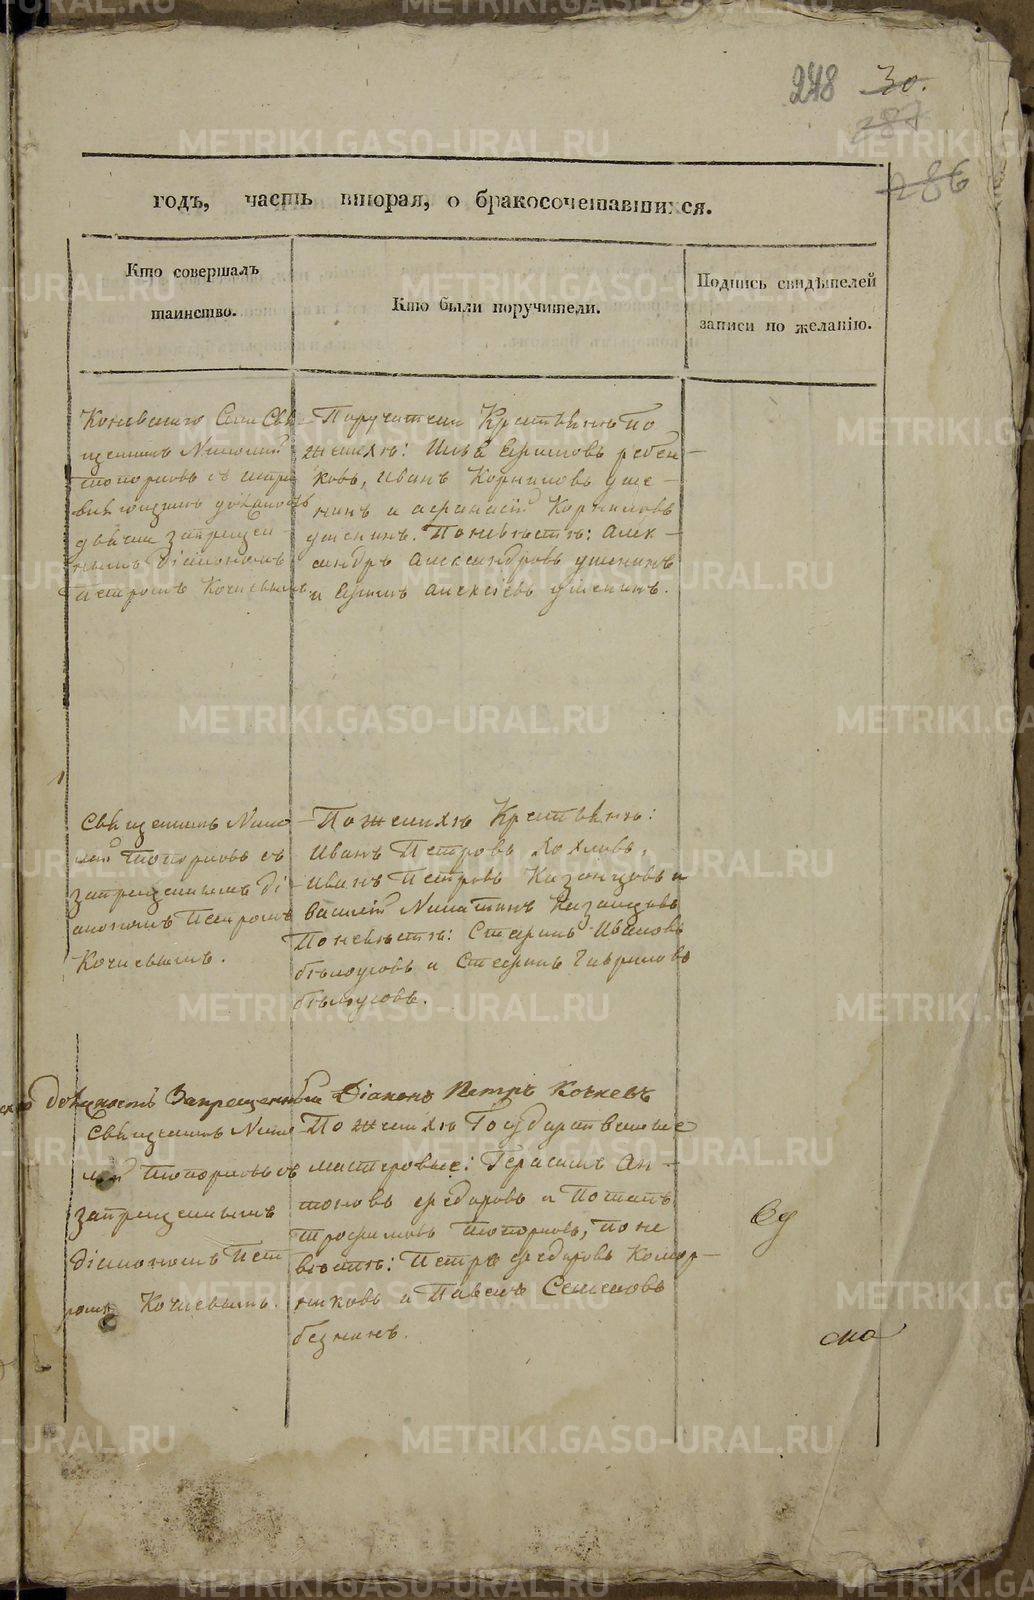 248 30.
287
286
годъ, часть вторая, о бракосочетавшихся.
Кто совершалъ
таинство.
Кто были поручители.
Подпись свидѣтелей
записи по желанію.
Священникъ
Топорковъ съ
запрещен
нымъ діакономъ
Петромъ Кочневымъ
Поручители Крестьяне По
женихѣ: Илья Ефимовъ
ковъ, Иванъ Корниловъ Уше-
нинъ и Афанасій Корниловъ
Ушенинъ. По невѣстѣ: Алек-
сандръ Александровъ Ушенинъ
и Ефимъ Алексѣевъ Ушенинъ.
Священникъ
Топорковъ съ
запрещеннымъ ді
акономъ Петромъ
Кочневымъ.
По женихѣ Крестьяне:
Иванъ Петровъ Хохловъ,
Иванъ Петровъ Казанцовъ и
Василій Казанцовъ
По невѣстѣ: Ивановъ
Бѣлоусовъ и Стефанъ Гавриловъ
Бѣлоусовъ.
должность Запрещенный Діаконъ Петръ Кочневъ
Священникъ
Топорковъ съ
запрещеннымъ
діакономъ Пет
ромъ Кочневымъ.
По женихѣ Государственные
мастеровые: Герасимъ Ан-
тоновъ Федоровъ и Потапъ
Трофимовъ Топорковъ, по не
вѣстѣ: Петръ Федоровъ Комор-
никовъ и Павелъ Семеновъ
METRIKI.GASO-URAL.RU